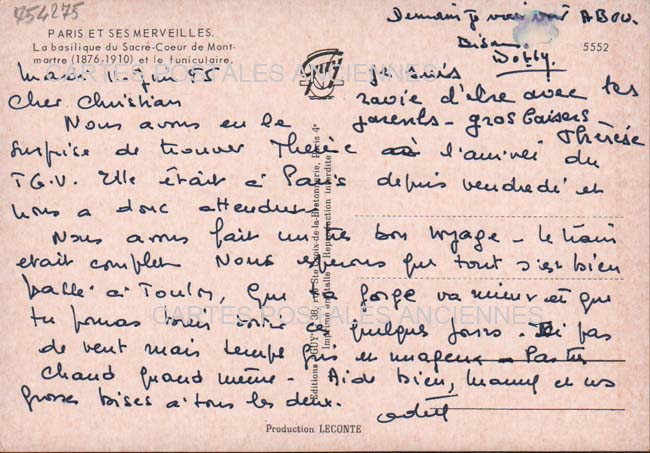 754275
PARIS ET SES MERVEILLES.
La basilique du Sacré-Coeur de Mont-
martre (1876-1910) et le funiculaire.
5552
Demain je vais voir ABOU.
Dison
Dolly.
Mardi juin 85
Cher Christian
Nous avons eu la
surprise de trouver Thérèse à l'arrivée du
T.G.V. Elle était à Paris depuis vendredi et
nous a donc attendus.
Nous avons fait un très bon voyage - le train
était complet. Nous espérons que tout s'est bien
passé à Toulon, que ta gorge va mieux et que
tu pourras ces quelques jours. Ici pas
de vent mais temps gris et nuageux - Pas très
chaud quand même. Aide bien, Mamy et vos
grosses bises à tous les deux.
Odett
Je suis
ravie d'être avec tes
parents - gros baisers -
Thérèse
Editions "GUY" 38, rue Ste-Croix-de-la-Bretonnerie, Paris 4e
Imprimé en Italie - Reproduction interdite
Production LECONTE
CARTES POSTALES ANCIENNES
CARTES POSTALES ANCIENNES